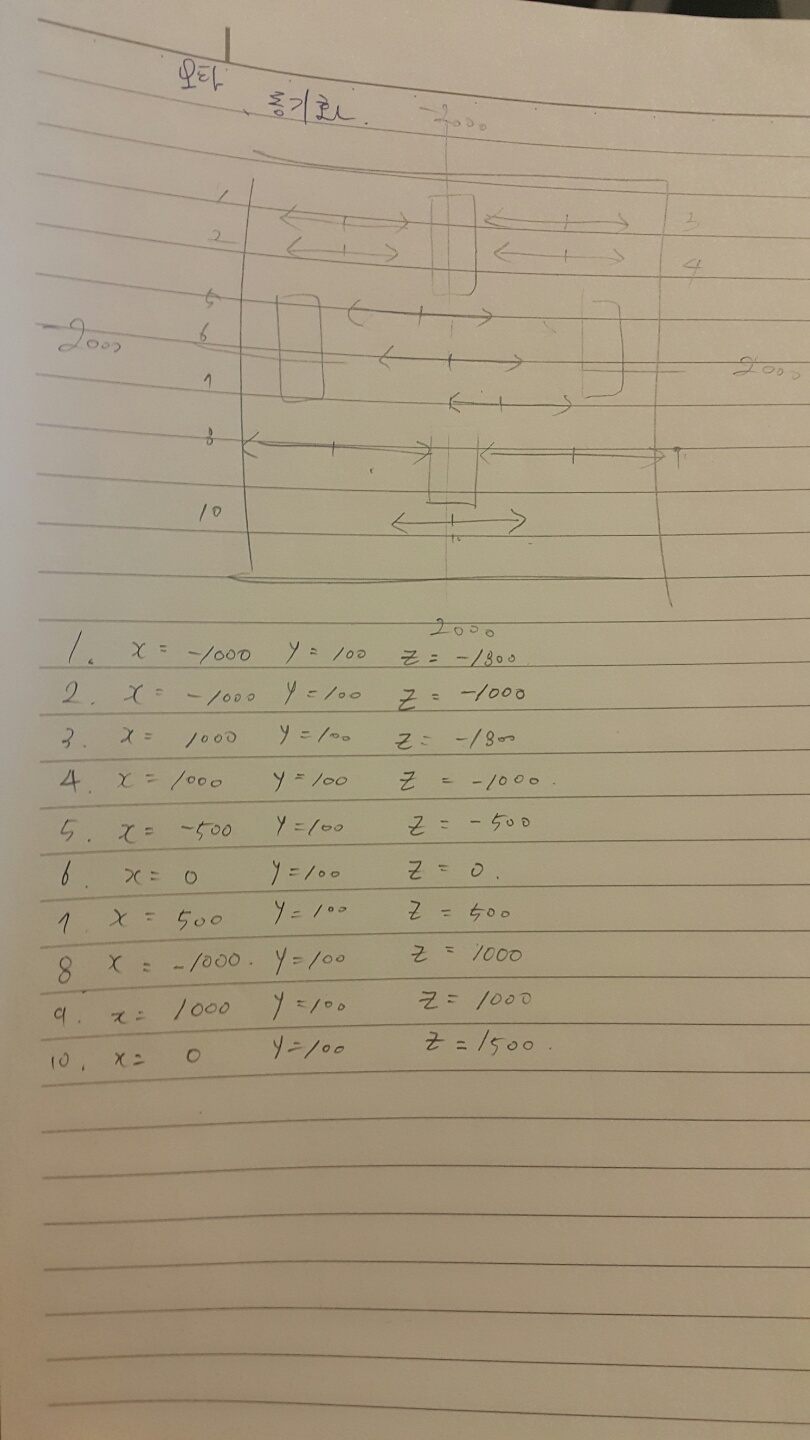 모하
동기화.
-2000
1
3
2
4
5
6
-2000
2000
7
8
9
10
2000
1. x = -1000 y = 100 z = -1800
2. x = -1000 y = 100 z = -1000
3. x = 1000 y = 100 z = -1800
4. x = 1000 y = 100 z = -1000.
5. x = -500 y = 100 z = -500
6. x = 0 y = 100 z = 0.
7 x = 500 y = 100 z = 500
8 x = -1000. y = 100 z = 1000
9. x = 1000 y = 100 z = 1000
10. x = 0 y = 100 z = 1500.